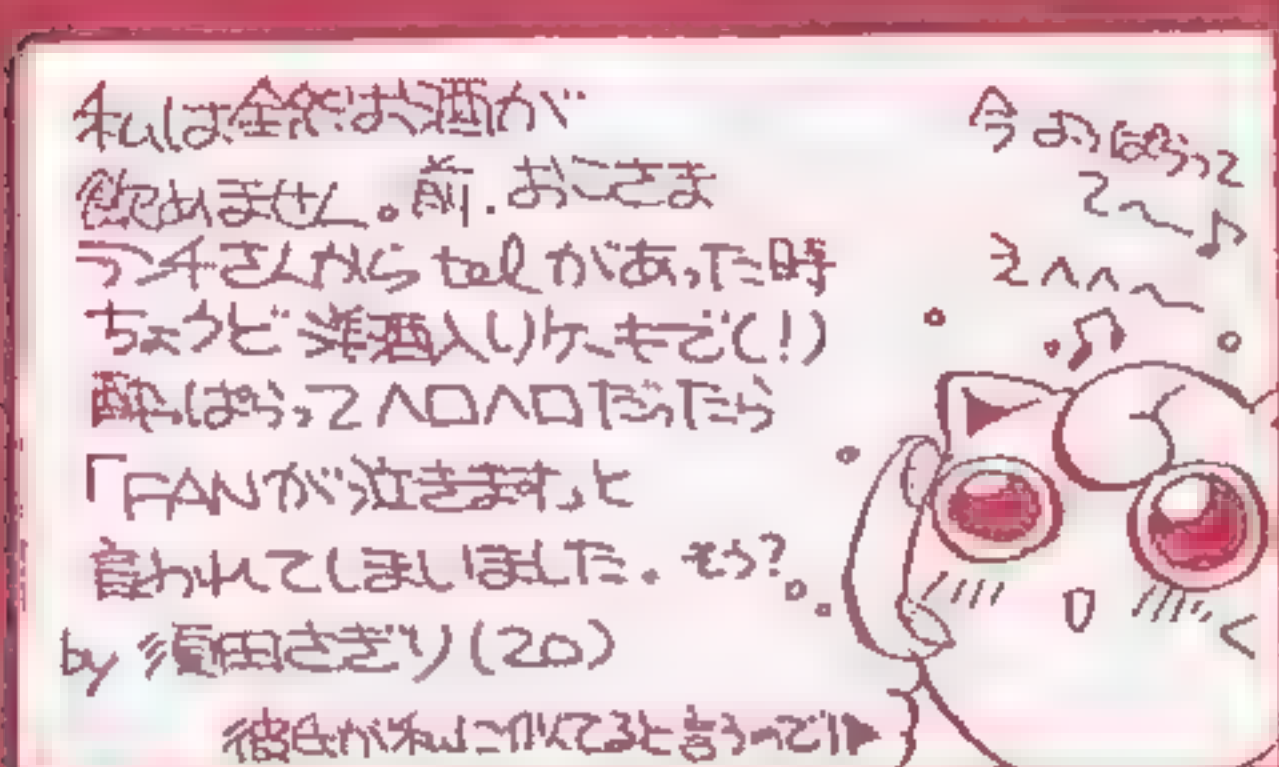 私は全然お酒が
飲めません。前.おこさま
ランチさんからtelがあった時
ちょうど洋酒入りケーキで(!)
酔っぱらってヘロヘロだったら
「FANが泣きますっと
言われてしまいました。そう?
by 須田さぎり(20)
彼氏が私に似てると言うので
今よっぱらって
て〜♪
えへへ〜